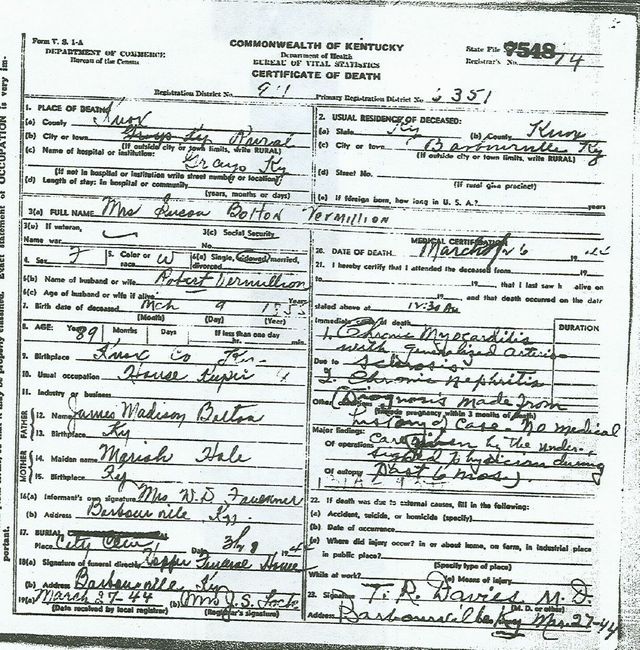 Form V. S. 1-A
DEPARTMENT OF COMMERCE
Bureau of the Census
COMMONWEALTH OF KENTUCKY
Department of Health
BUREAU OF VITAL STATISTICS
CERTIFICATE OF DEATH
State File 7548
Registrar's No. 74
Registration District No. 911
Primary Registration District No. 6351
1. PLACE OF DEATH:
(a) County Knox
(b) City or town Rural
(If outside city or town limits, write RURAL)
(c) Name of hospital or institution:
Grays Ky
(If not in hospital or institution write street number or location)
(d) Length of stay: in hospital or community
(years, months or days)
2. USUAL RESIDENCE OF DECEASED:
(a) State Ky (b) County Knox
(c) City or town Barbourville Ky
(If outside city or town limits, write RURAL)
(d) Street No.
(If rural give precinct)
(e) If foreign born, how long in U. S. A.? years
3(a) FULL NAME Mrs Susan Bolton Vermillion
3(b) If veteran, Name war
3(c) Social Security No.
4. Sex F 5. Color or race W 6(a) Single, widowed, married, divorced
6(b) Name of husband or wife Robert Vermillion
6(c) Age of husband or wife if alive Years
7. Birth date of deceased Mch 9 1855
(Month) (Day) (Year)
8. AGE: Years 89 Months Days If less than one day
hr. min.
9. Birthplace Knox Co Ky.
10. Usual occupation House Keeper
11. Industry or business
FATHER
12. Name James Madison Bolton
13. Birthplace Ky
MOTHER
14. Maiden name Mariah Hale
15. Birthplace Ky
16(a) Informant's own signature Mrs W. D. Faulkner
(b) Address Barbourville Ky.
17. BURIAL
Place City Cem Date 3/28 1944
18(a) Signature of funeral director Hopper Funeral House
(b) Address Barbourville, Ky
19(a) March 27-44 (b) Mrs J. S.
(Date received by local registrar) (Registrar's signature)
MEDICAL CERTIFICATION
20. DATE OF DEATH March 26 19 44
21. I hereby certify that I attended the deceased from 19
19 , that I last saw h alive on
19 , and that death occurred on the date
stated above at 12:30 Am
Immediate cause of death DURATION
1. Chronic Myocarditis
with generalized Arterio
Due to Sclerosis
2. Chronic Nephritis
Other conditions (Diagnosis made from
(Include pregnancy within 3 months of death)
history of case. No medical
Major findings:
care given by the under-
Of operations signed physician during
Of autopsy Past 6 mos.)
22. If death was due to external causes, fill in the following:
(a) Accident, suicide, or homicide (specify)
(b) Date of occurrence
(c) Where did injury occur? in or about home, on farm, in industrial place
in public place?
(Specify type of place)
While at work? (e) Means of injury
23. Signature T. R. Davies M. D.
(M. D. or other)
Address Barbourville Ky Mar 27-44